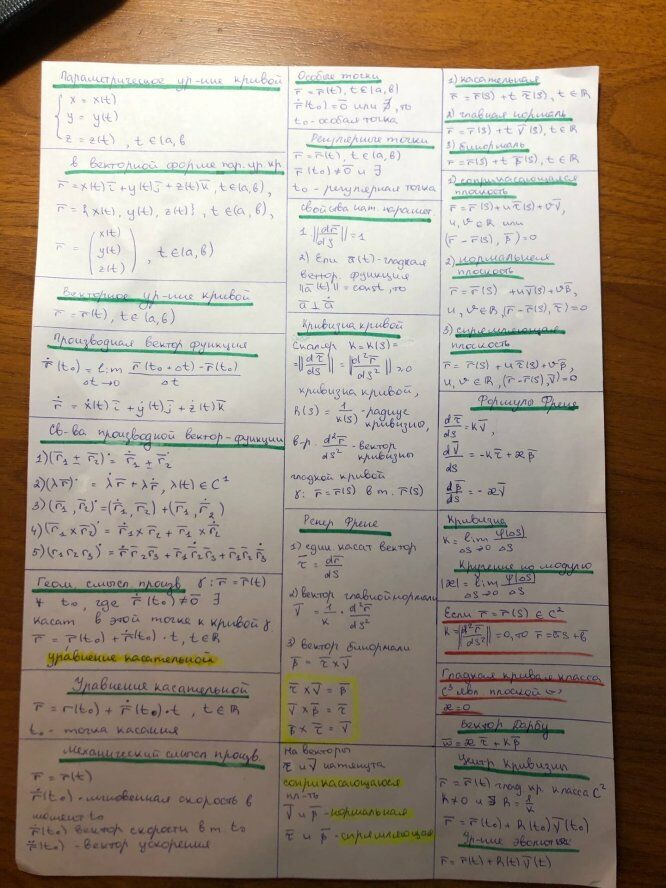 Параметрическое ур-ние кривой
x = x(t)
y = y(t)
z = z(t) , t ∈ (a, b)
в векторной форме пар. ур. кр.
r̅ = x(t) i̅ + y(t) j̅ + z(t) k̅, t ∈ (a, b),
r̅ = { x(t), y(t), z(t) }, t ∈ (a, b),
r̅ = ( x(t) y(t) z(t) ) , t ∈ (a, b)
Векторное ур-ние кривой
r̅ = r̅(t), t ∈ (a, b)
Производная вектор функция
ṙ̅(t₀) = lim Δt→0 r̅(t₀ + Δt) - r̅(t₀) / Δt
ṙ̅ = ẋ(t) i̅ + ẏ(t) j̅ + ż(t) k̅
Св-ва производной вектор-функции
1) (r̅₁ ± r̅₂)˙ = ṙ̅₁ ± ṙ̅₂
2) (λr̅)˙ = λ̇ r̅ + λ ṙ̅, λ(t) ∈ C¹
3) (r̅₁, r̅₂)˙ = (ṙ̅₁, r̅₂) + (r̅₁, ṙ̅₂)
4) (r̅₁ × r̅₂)˙ = ṙ̅₁ × r̅₂ + r̅₁ × ṙ̅₂
5) (r̅₁ r̅₂ r̅₃)˙ = ṙ̅₁ r̅₂ r̅₃ + r̅₁ ṙ̅₂ r̅₃ + r̅₁ r̅₂ ṙ̅₃
Геом. смысл произв. γ : r̅ = r̅(t)
∀ t₀, где ṙ̅(t₀) ≠ 0̅ ∃
касат в этой точке к кривой γ
r̅ = r̅(t₀) + ṙ̅(t₀) · t, t ∈ R
уравнение касательной
Уравнение касательной
r̅ = r̅(t₀) + ṙ̅(t₀) · t , t ∈ R
t₀ - точка касания
Механический смысл произв.
r̅ = r̅(t)
ṙ̅(t₀) - мгновенная скорость в
момент t₀
ṙ̅(t₀) вектор скорости в т. t₀
r̈̅(t₀) - вектор ускорения
Особые точки
r̅ = r̅(t), t ∈ (a, b)
ṙ̅(t₀) = 0̅ или ∄, то
t₀ - особая точка
Регулярные точки
r̅ = r̅(t), t ∈ (a, b)
ṙ̅(t₀) ≠ 0̅ и ∃
t₀ - регулярная точка
Свойства нат. парамет
1. ||dr̅/dS|| = 1
2) Если a̅(t) - гладкая
вектор. функция
||a̅(t)|| = const, то
a̅ ⊥ ȧ̅
Кривизна кривой
Скаляр k = k(S) =
= ||dτ̅/dS|| = ||d²r̅/dS²|| ≥ 0
кривизна кривой,
R(S) = 1/k(S) - радиус
кривизны,
в-р. d²r̅/dS² - вектор
кривизны
гладкой кривой
γ : r̅ = r̅(S) в т. r̅(S)
Репер Френе
1) един. касат вектор
τ̅ = dr̅/dS
2) вектор главной нормали
ν̅ = 1/k · d²r̅/dS²
3) вектор бинормали
β̅ = τ̅ × ν̅
τ̅ × ν̅ = β̅
ν̅ × β̅ = τ̅
β̅ × τ̅ = ν̅
На векторы
τ̅ и ν̅ натянута
соприкасающаяся
пл-ть
ν̅ и β̅ - нормальная
τ̅ и β̅ - спрямляющая
1) касательная
r̅ = r̅(S) + t τ̅(S), t ∈ R
2) главная нормаль
r̅ = r̅(S) + t ν̅(S), t ∈ R
3) бинормаль
r̅ = r̅(S) + t β̅(S), t ∈ R
1) соприкасающаяся
плоскость
r̅ = r̅(S) + u τ̅(S) + v ν̅,
u, v ∈ R или
(r̅ - r̅(S), β̅) = 0
2) нормальная
плоскость
r̅ = r̅(S) + u ν̅(S) + v β̅,
u, v ∈ R, (r̅ - r̅(S), τ̅) = 0
3) спрямляющая
плоскость
r̅ = r̅(S) + u τ̅(S) + v β̅,
u, v ∈ R, (r̅ - r̅(S), ν̅) = 0
Формулы Френе
dτ̅/dS = k ν̅,
dν̅/dS = -k τ̅ + æ β̅
dβ̅/dS = - æ ν̅
Кривизна
k = lim ΔS→0 φ(ΔS)/ΔS
Кручение по модулю
|æ| = lim ΔS→0 ψ(ΔS)/ΔS
Если r̅ = r̅(S) ∈ C²
k = ||d²r̅/dS²|| = 0, то r̅ = a̅S + b̅
Гладкая кривая класса
C³ явл. плоской ⇔
æ = 0
Вектор Дарбу
ω̅ = æ τ̅ + k β̅
Центр Кривизны
r̅ = r̅(t) глад кр. класса C²
k ≠ 0 и ∃ R = 1/k
r̅ = r̅(t₀) + R(t₀) ν̅(t₀)
Ур-ние эволюты
r̅ = r̅(t) + R(t) ν̅(t)